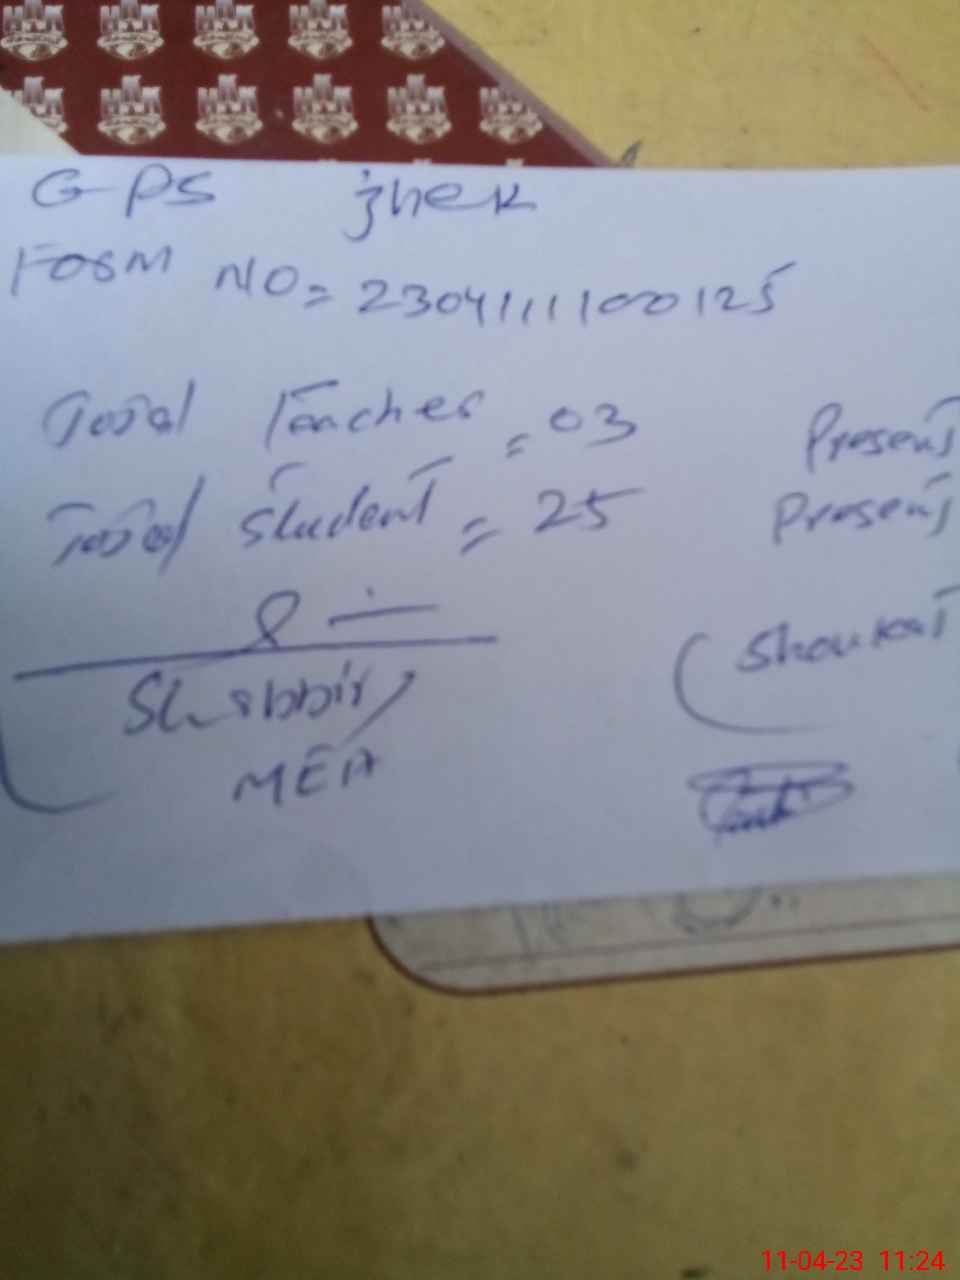 GPS jhek
Form NO = 2304111100125
Total Teacher = 03 Present
Total Student = 25 Present
Shabbir
MEA
(Shoukat
11-04-23 11:24